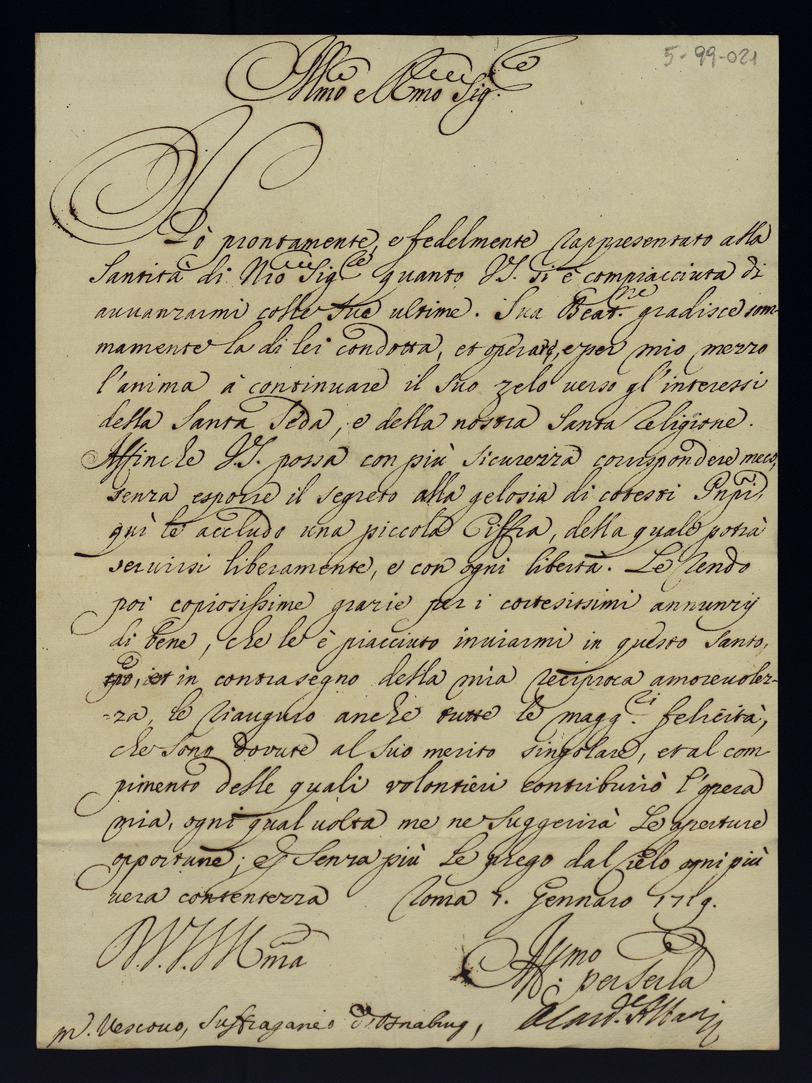 5-99-021
Ill.mo e R.mo Sig.re
Hò prontamente, e fedelmente rappresentato alla
Santità di N.ro Sig.re quanto V.S. si è compiacciuta di
auuanzarmi colle sue ultime. Sua Beat.ne gradisce som-
mamente la di lei condotta, et operato, e per mio mezzo
l'anima à continuare il suo zelo verso gl'interessi
della Santa Sede, e della nostra Santa Religione.
Affinche V.S. possa con più sicurezza corrispondere meco,
senza esporre il segreto alla gelosia di cotesti Pnpi,
quì le accludo una piccola Ciffra, della quale potrà
seruirsi liberamente, e con ogni libertà. Le rendo
poi copiosissime grazie per i cortesissimi annunzij
di bene, che le è piacciuto inuiarmi in questo santo,
tpo, et in contrasegno della mia reciproca amoreuolez-
-za, le riauguro anche tutte le magg.ri felicità,
che sono dovute al suo merito singolare, et al com-
pimento delle quali volontieri contribuirò l'opera
mia, ogni qual uolta me ne suggerirà le aperture
opportune; e senza più le prego dal Cielo ogni più
uera contentezza Roma 7. Gennaro 1719.
D.V.S. Ill.ma
Aff.mo
per Ser.la
Il Card.le Albani
M.r Vescouo, Suffraganeo d'Osnabrug,